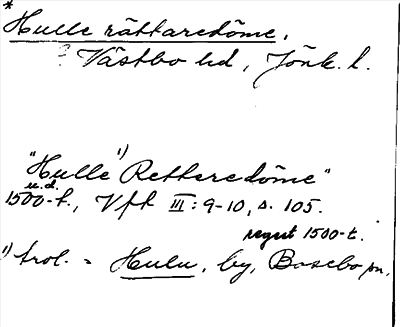 * Hulle rättaredöme.
? Västbo hd, Jönk. l.
"Hulle 1) Rettaredöme"
u.d.
1500-t., Vfh III: 9-10, s. 105.
regest 1500-t.
1) trol. = Hulu, by, Bosebo sn.